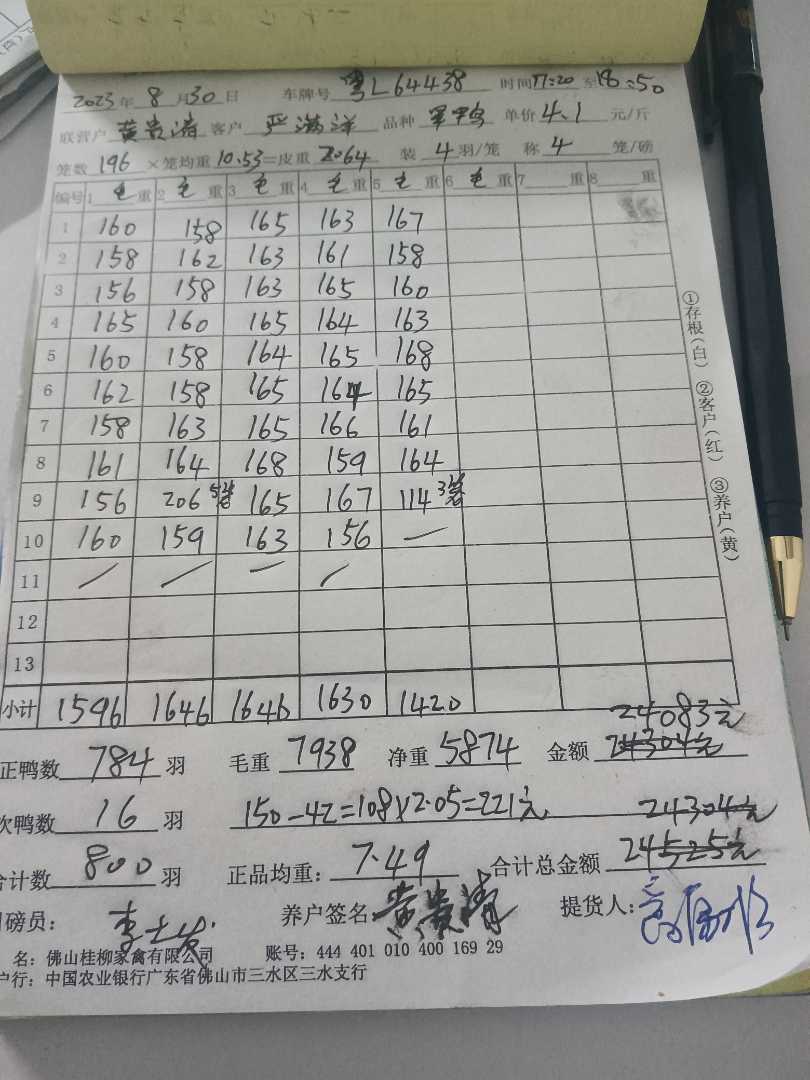 2023年 8 月 30 日 车牌号 粤L64438 时间 17:20 至 18:50
联营户 黄贵涛 客户 严满洋 品种 单价 4.1 元/斤
笼数 196 ×笼均重 10.53=皮重 2064 装 4 羽/笼 称 4 笼/磅
编号 1 毛 重 2 毛 重 3 毛 重 4 毛 重 5 毛 重 6 毛 重 7 重 8 重
1 160 158 165 163 167
2 158 162 163 161 158
3 156 158 163 165 160
4 165 160 165 164 163
5 160 158 164 165 168
6 162 158 165 164 165
7 158 163 165 166 161
8 161 164 168 159 164
9 156 206 5笼 165 167 114 3笼
10 160 159 163 156 —
11 / / — /
12
13
小计 1596 1646 1646 1630 1420
24083元
正鸭数 784 羽 毛重 7938 净重 5874 金额 24304元
次鸭数 16 羽 150-42=108×2.05=221元 24304元
合计数 800 羽 正品均重: 7.49 合计总金额 24525元
磅员: 养户签名: 黄贵涛 提货人:
名: 佛山桂柳家禽有限公司 账号: 444 401 010 400 169 29
户行: 中国农业银行广东省佛山市三水区三水支行
①存根(白) ②客户(红) ③养户(黄)